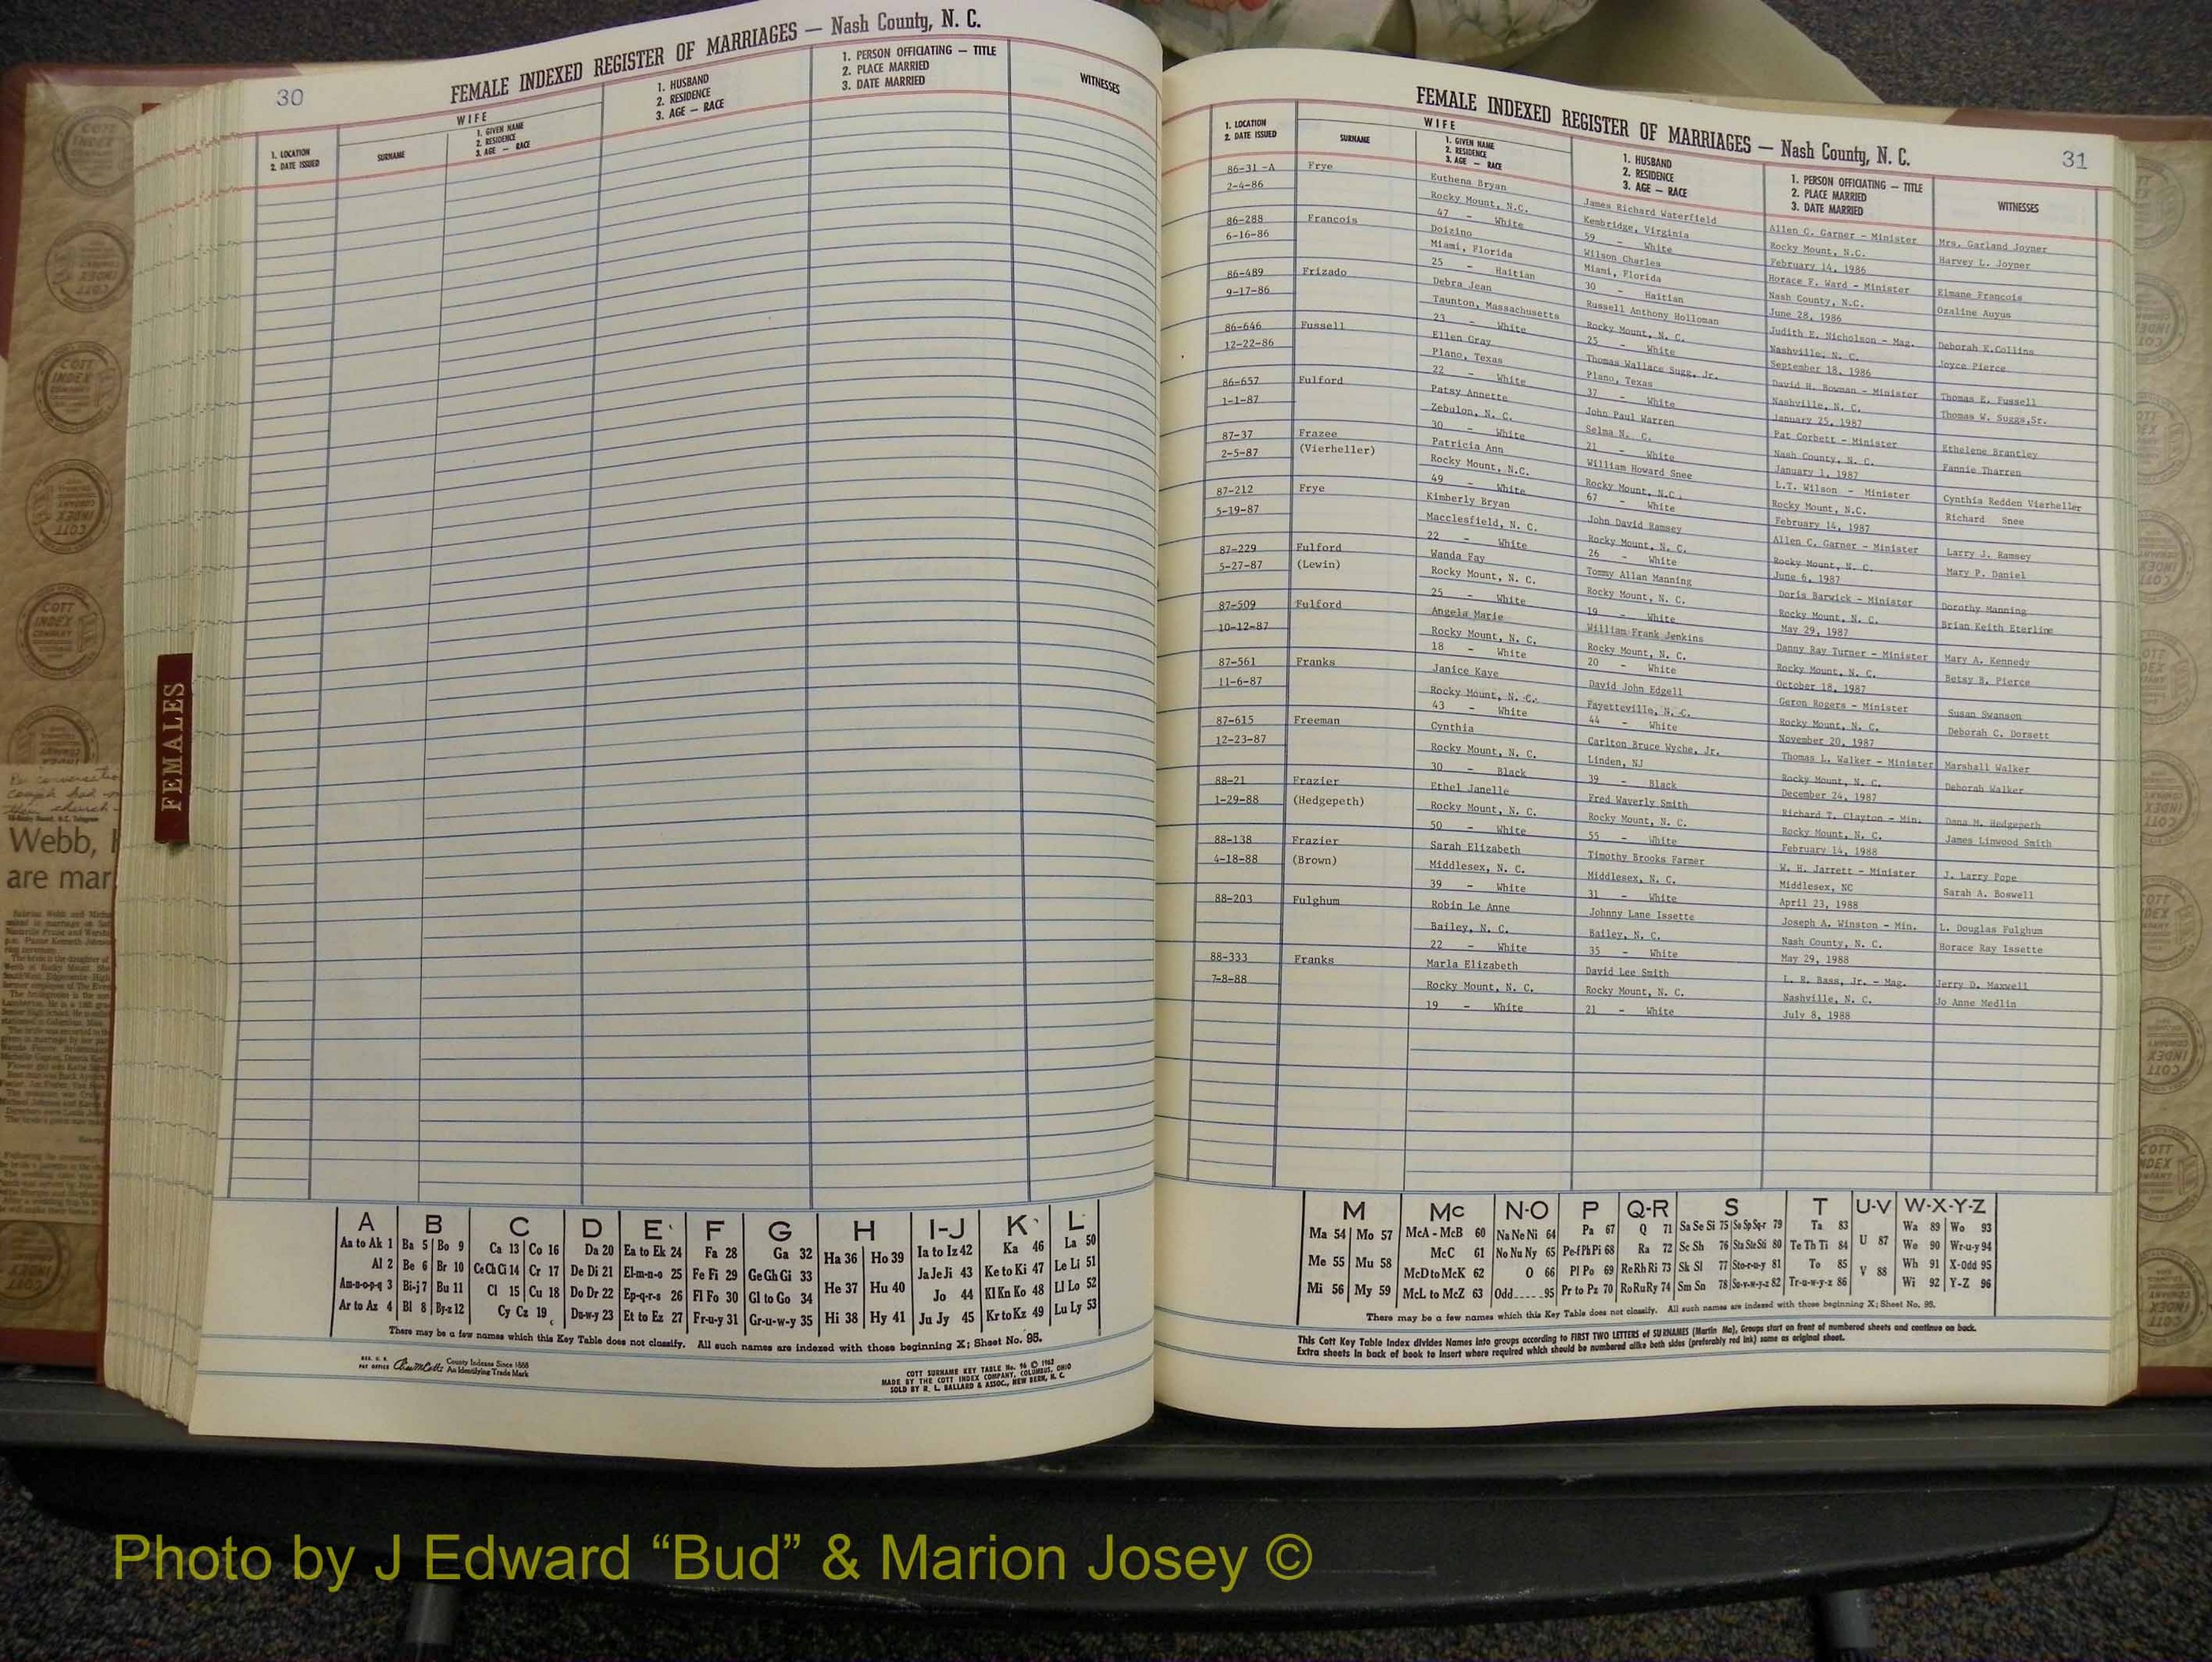 30
FEMALE INDEXED REGISTER OF MARRIAGES — Nash County, N. C.
1. LOCATION
2. DATE ISSUED
WIFE
SURNAME
1. GIVEN NAME
2. RESIDENCE
3. AGE — RACE
1. HUSBAND
2. RESIDENCE
3. AGE — RACE
1. PERSON OFFICIATING — TITLE
2. PLACE MARRIED
3. DATE MARRIED
WITNESSES
FEMALES
Webb,
are mar
A B C D E F G H I-J K L
Aa to Ak 1 Ba 5 Bo 9 Ca 13 Co 16 Da 20 Ea to Ek 24 Fa 28 Ga 32 Ha 36 Ho 39 Ia to Iz 42 Ka 46 La 50
Al 2 Be 6 Br 10 Ce Ch Ci 14 Cr 17 De Di 21 El-m-n-o 25 Fe Fi 29 Ge Gh Gi 33 He 37 Hu 40 Ja Je Ji 43 Ke to Ki 47 Le Li 51
Am-n-o-p-q 3 Bi-j 7 Bu 11 Cl 15 Cu 18 Do Dr 22 Ep-q-r-s 26 Fl Fo 30 Gl to Go 34 Jo 44 Kl Kn Ko 48 Ll Lo 52
Ar to Az 4 Bl 8 By-z 12 Cy Cz 19 Du-w-y 23 Et to Ez 27 Fr-u-y 31 Gr-u-w-y 35 Hi 38 Hy 41 Ju Jy 45 Kr to Kz 49 Lu Ly 53
There may be a few names which this Key Table does not classify. All such names are indexed with those beginning X; Sheet No. 95.
County Indexes Since 1888
An Identifying Trade Mark
COTT SURNAME KEY TABLE No. 96 © 1962
MADE BY THE COTT INDEX COMPANY, COLUMBUS, OHIO
SOLD BY R. L. BALLARD & ASSOC., NEW BERN, N. C.
FEMALE INDEXED REGISTER OF MARRIAGES — Nash County, N. C.
31
1. LOCATION
2. DATE ISSUED
WIFE
SURNAME
1. GIVEN NAME
2. RESIDENCE
3. AGE — RACE
1. HUSBAND
2. RESIDENCE
3. AGE — RACE
1. PERSON OFFICIATING — TITLE
2. PLACE MARRIED
3. DATE MARRIED
WITNESSES
86-31 -A Frye Euthena Bryan James Richard Waterfield Allen C. Garner - Minister Mrs. Garland Joyner
2-4-86 Rocky Mount, N.C. Kembridge, Virginia Rocky Mount, N.C. Harvey L. Joyner
47 - White 59 - White February 14, 1986
86-288 Francois Doizino Wilson Charles Horace F. Ward - Minister Elmane Francois
6-16-86 Miami, Florida Miami, Florida Nash County, N.C. Ozaline Auyus
25 - Haitian 30 - Haitian June 28, 1986
86-489 Frizado Debra Jean Russell Anthony Holloman Judith E. Nicholson - Mag. Deborah K.Collins
9-17-86 Taunton, Massachusetts Rocky Mount, N. C. Nashville, N. C. Joyce Pierce
23 - White 25 - White September 18, 1986
86-646 Fussell Ellen Gray Thomas Wallace Sugg, Jr. David H. Bowman - Minister Thomas E. Fussell
12-22-86 Plano, Texas Plano, Texas Nashville, N. C. Thomas W. Suggs,Sr.
22 - White 37 - White January 25, 1987
86-657 Fulford Patsy Annette John Paul Warren Pat Corbett - Minister Ethelene Brantley
1-1-87 Zebulon, N. C. Selma N. C. Nash County, N. C. Fannie Tharren
30 - White 21 - White January 1, 1987
87-37 Frazee Patricia Ann William Howard Snee L.T. Wilson - Minister Cynthia Redden Vierheller
2-5-87 (Vierheller) Rocky Mount, N.C. Rocky Mount, N.C. Rocky Mount, N.C. Richard Snee
49 - White 67 - White February 14, 1987
87-212 Frye Kimberly Bryan John David Ramsey Allen C. Garner - Minister Larry J. Ramsey
5-19-87 Macclesfield, N. C. Rocky Mount, N. C. Rocky Mount, N. C. Mary P. Daniel
22 - White 26 - White June 6, 1987
87-229 Fulford Wanda Fay Tommy Allan Manning Doris Barwick - Minister Dorothy Manning
5-27-87 (Lewin) Rocky Mount, N. C. Rocky Mount, N. C. Rocky Mount, N. C. Brian Keith Eterline
25 - White 19 - White May 29, 1987
87-509 Fulford Angela Marie William Frank Jenkins Danny Ray Turner - Minister Mary A. Kennedy
10-12-87 Rocky Mount, N. C. Rocky Mount, N. C. Rocky Mount, N. C. Betsy B. Pierce
18 - White 20 - White October 18, 1987
87-561 Franks Janice Kaye David John Edgell Geron Rogers - Minister Susan Swanson
11-6-87 Rocky Mount, N. C. Fayetteville, N. C. Rocky Mount, N. C. Deborah C. Dorsett
43 - White 44 - White November 20, 1987
87-615 Freeman Cynthia Carlton Bruce Wyche, Jr. Thomas L. Walker - Minister Marshall Walker
12-23-87 Rocky Mount, N. C. Linden, NJ Rocky Mount, N. C. Deborah Walker
30 - Black 39 - Black December 24, 1987
88-21 Frazier Ethel Janelle Fred Waverly Smith Richard T. Clayton - Min. Dana M. Hedgepeth
1-29-88 (Hedgepeth) Rocky Mount, N. C. Rocky Mount, N. C. Rocky Mount, N. C. James Linwood Smith
50 - White 55 - White February 14, 1988
88-138 Frazier Sarah Elizabeth Timothy Brooks Farmer W. H. Jarrett - Minister J. Larry Pope
4-18-88 (Brown) Middlesex, N. C. Middlesex, N. C. Middlesex, NC Sarah A. Boswell
39 - White 31 - White April 23, 1988
88-203 Fulghum Robin Le Anne Johnny Lane Issette Joseph A. Winston - Min. L. Douglas Fulghum
Bailey, N. C. Bailey, N. C. Nash County, N. C. Horace Ray Issette
22 - White 35 - White May 29, 1988
88-333 Franks Marla Elizabeth David Lee Smith L. R. Bass, Jr. - Mag. Jerry D. Maxwell
7-8-88 Rocky Mount, N. C. Rocky Mount, N. C. Nashville, N. C. Jo Anne Medlin
19 - White 21 - White July 8, 1988
M Mc N-O P Q-R S T U-V W-X-Y-Z
Ma 54 Mo 57 McA - McB 60 Na Ne Ni 64 Pa 67 Q 71 Sa Se Si 75 So Sp Sq-r 79 Ta 83 U 87 Wa 89 Wo 93
Me 55 Mu 58 McC 61 No Nu Ny 65 Pe-f Ph Pi 68 Ra 72 Sc Sh 76 Sta Ste Sti 80 Te Th Ti 84 We 90 Wr-u-y 94
McD to McK 62 O 66 Pl Po 69 Re Rh Ri 73 Sk Sl 77 Sto-r-u-y 81 To 85 V 88 Wh 91 X-Odd 95
Mi 56 My 59 McL to McZ 63 Odd......95 Pr to Pz 70 Ro Ru Ry 74 Sm Sn 78 Su-v-w-y-z 82 Tr-u-w-y-z 86 Wi 92 Y-Z 96
There may be a few names which this Key Table does not classify. All such names are indexed with those beginning X; Sheet No. 95.
This Cott Key Table Index divides Names into groups according to FIRST TWO LETTERS of SURNAMES (Martin Ma), Groups start on front of numbered sheets and continue on back.
Extra sheets in back of book to insert where required which should be numbered alike both sides (preferably red ink) same as original sheet.
Photo by J Edward “Bud” & Marion Josey ©